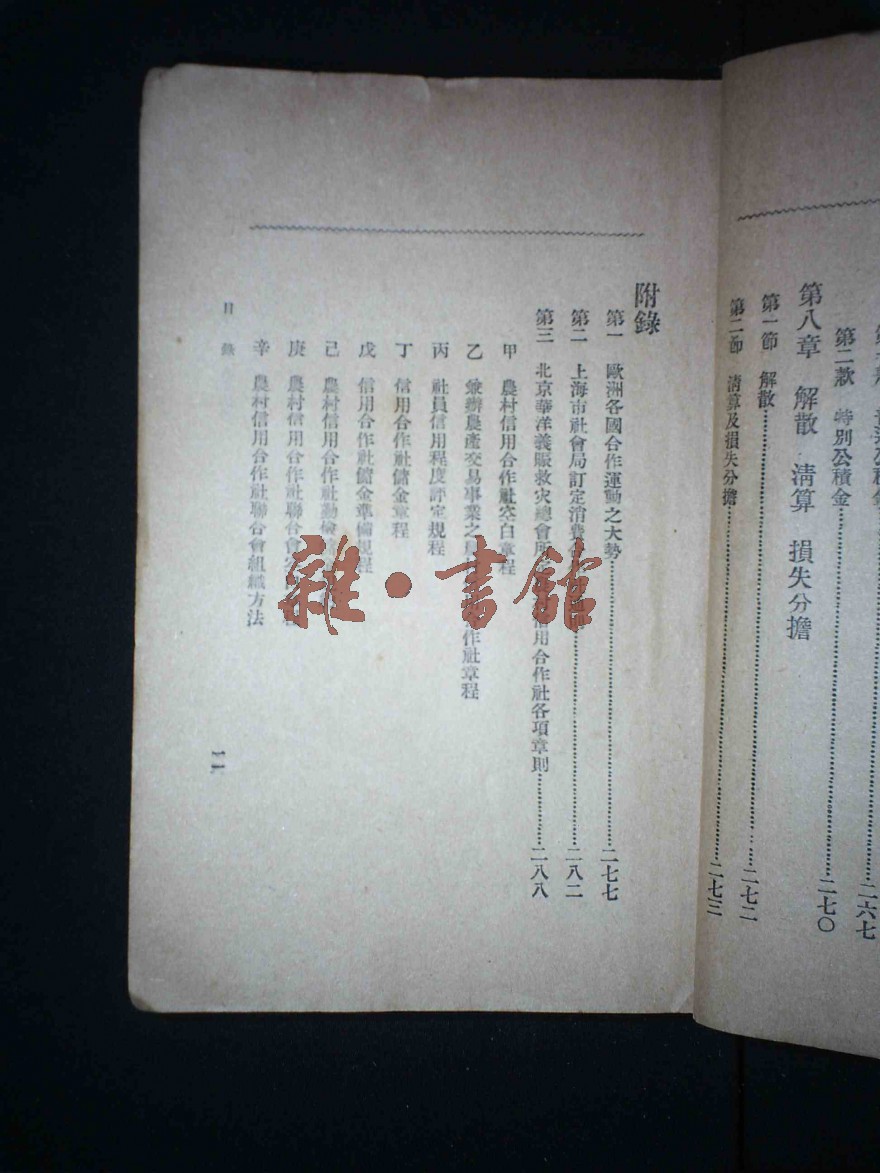 第二款　特別公積金……二七〇
第八章　解散　淸算　損失分擔
第一節　解散……二七二
第二節　淸算及損失分擔……二七三
附錄
第一　歐洲各國合作運動之大勢……二七七
第二　上海市社會局訂定消費……二八二
第三　北京華洋義賑救灾總會所信用合作社各項章則……二八八
甲　農村信用合作社空白章程
乙　兼辦農產交易事業之作社章程
丙　社員信用程度評定規程
丁　信用合作社儲金章程
戊　信用合作社儲金準備規程
己　農村信用合作社勤儉
庚　農村信用合作社聯合會
辛　農村信用合作社聯合會組織方法
目錄
一一
雜·書館